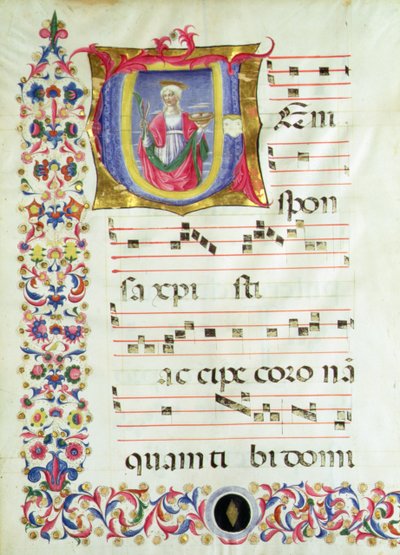 VENI
spon
sa xpi sti
ac cipe coro nã
quam ti bi domi